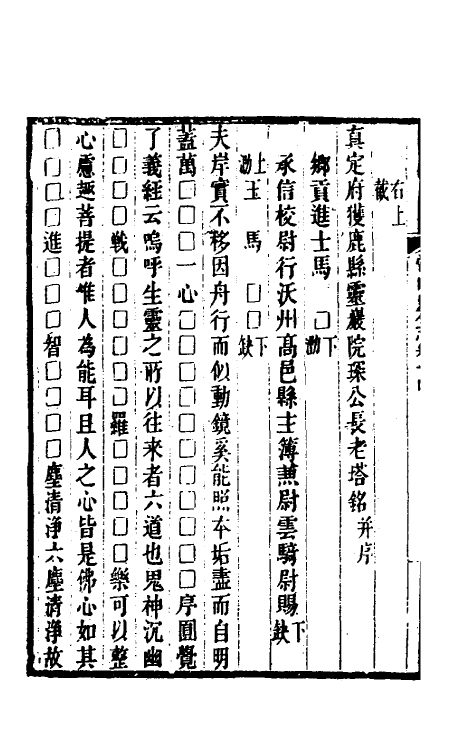 右上
截
真定府獲鹿縣靈巖院琛公長老塔銘并序
鄉貢進士馬□下泐
承信校尉行沃州高邑縣主簿兼尉雲騎尉賜下缺
上泐玉馬□□下缺
夫岸實不移因舟行而似動鏡奚能照本垢盡而自明
蓋萬□□□一心□□□□□□□□□□□序圓覺
了義經云嗚呼生靈之所以往来者六道也鬼神沉幽
□□□□戰□□□□□□羅□□□□□樂可以整
心慮趣菩提者惟人為能耳且人之心皆是佛心如其
□□□□進□□□智□□□□塵清淨六塵清淨故